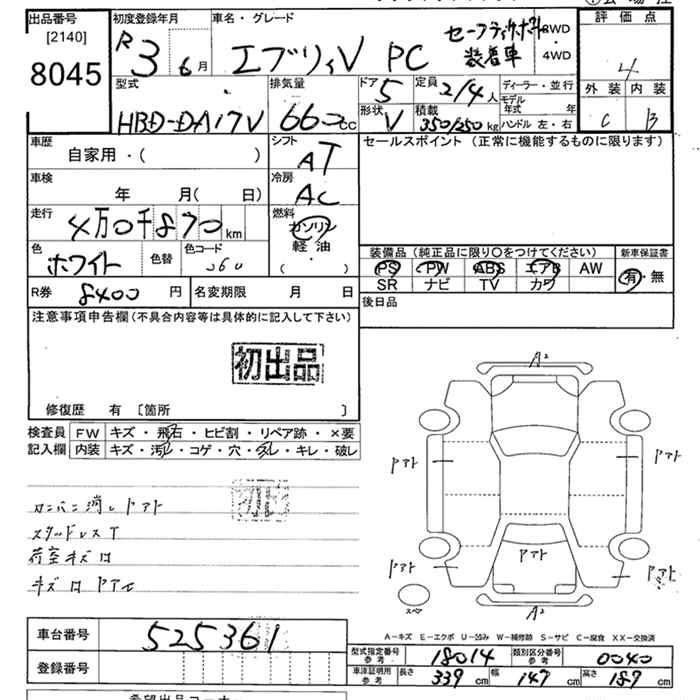 出品番号 初度登録年月 車名・グレード 評価点
[2140] R3 6月 エブリィV PC セーフティサポート装着車 2WD・4WD 4
8045 型式 排気量 ドア 5 定員 2/4人 ディーラー・並行 外装 内装
HBD-DA17V 660cc 形状 V 積載 350/250kg モデル年式 年 ハンドル 左・右 C B
車歴 シフト セールスポイント(正常に機能するものに限ります)
自家用・( ) AT
車検 冷房
年 月( 日) AC
走行 燃料
4万0千870km ガソリン
色 色替 色コード 軽油 装備品(純正品に限り〇をつけてください) 新車保証書
ホワイト 060 ・( ) PS PW ABS エアB AW 有・無
R券 8400円 名変期限 月 日 SR ナビ TV カワ
後日品
注意事項申告欄(不具合内容等は具体的に記入して下さい)
初出品
修復歴 有 〔箇所 〕
検査員 FW キズ・飛石・ヒビ割・リペア跡・×要
記入欄 内装 キズ・汚レ・コゲ・穴・スレ・キレ・破レ
初出
カンバン消しアト
スタッドレスT
荷室キズ
A2
アト アト
アト
アト アト
スペア
A2
A-キズ E-エクボ U-凹み W-補修跡 S-サビ C-腐食 XX-交換済
車台番号 525361
型式指定番号 参考 18014 類別区分番号 参考 0040
登録番号
車庫証明用 参考 長さ 339cm 幅 147cm 高さ 189cm
希望出品コーナー